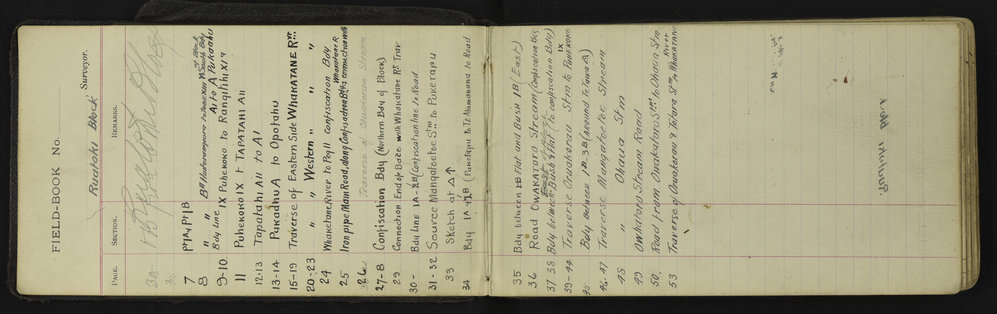 FIELD-BOOK No.
Ruatoki Block Surveyor.
PAGE. SECTION. REMARKS.
3B
7 Pt 1A & Pt 1B
8 " " Bdy
9-10 Bdy line IX Puhekoko to Rangitihi XI
11 Puhekoko IX & TAPATAHI A11
12-13 Tapatahi A11 to A1
13-14 Pukadhu A to Opotahu
15-19 Traverse of Eastern Side WHAKATANE Rvr.
20-23 " " Western " " "
24 Whakatane River to Peg 11 Confiscation Bdy
25 Iron pipe Main Road, along Confiscation Bdy & connection with Whakatane R
26 Traverse of Owakorau Stream
27-8 Confiscation Bdy (Northern Bdy of Block)
29 Connection End of Base with Whakatane Rr Trav
30- Bdy line 1A-2B (Confiscation line to Road
31-32 Source Mangatoetoe Stm to Pukerapu
33 Sketch at Δ↑
34 Bdy 1A & 1B (Puketapu to Te Ahumanama to Road
35 Bdy between 1B Flat and Bush 1B (East)
36 Road OWAKATORO Stream (Confiscation Bdy
37-38 Bdy between Bush & Flat (To confiscation Bdy)
39-44 Traverse Oruakorau Stm to PUHEKOKO IX
45 Bdy Between 1B-3B (around Tawa A)
46-47 Traverse Mangatoetoe Stream
48 " Ohaua Stm
49 Owhatoro Stream Road
50. Road from Owakatoro Stm to Ohaua Stm
53 Traverse of Oruakorau & Totara Stm to WHAKATANE River
Ruatoki Block